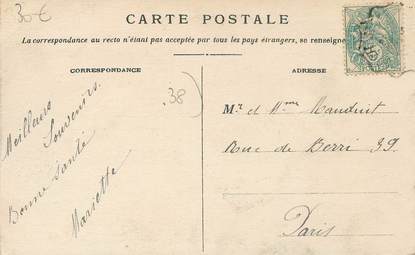 30€
CARTE POSTALE
La correspondance au recto n'étant pas acceptée par tous les pays étrangers, se renseigne
CORRESPONDANCE
ADRESSE
(38)
Meilleurs
Souvenirs.
Bonne santé
Mariette
Mr et Mme Mauduit
Rue de Berri 39.
Paris